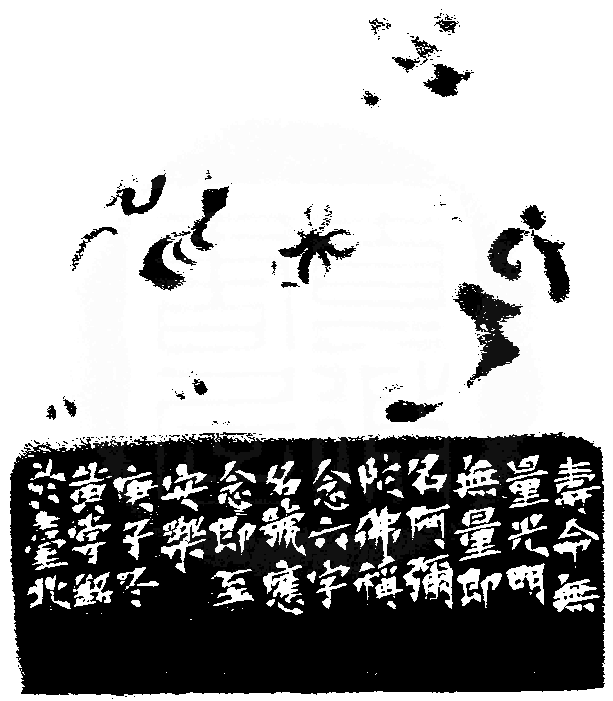 壽命無
量光明
無量即
名阿彌
陀佛稱
念六字
名號應
念即至
安樂
庚子冬
黃嘗銘
臺北